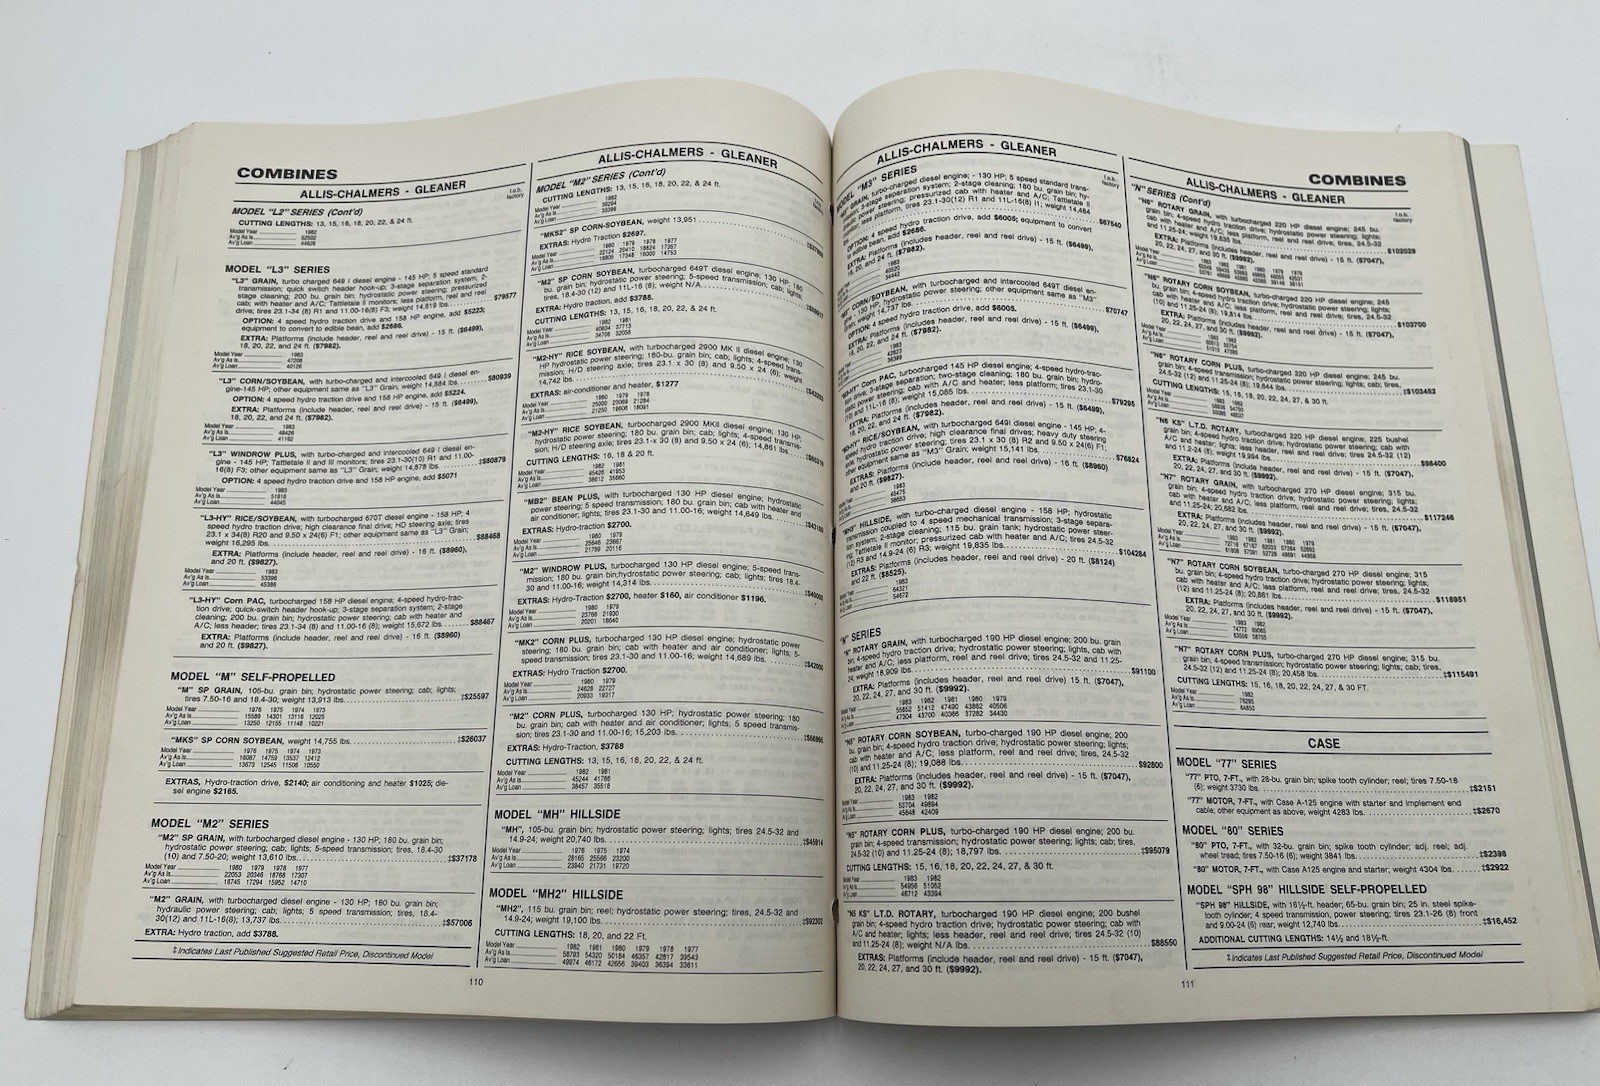 COMBINES
ALLIS-CHALMERS - GLEANER
f.o.b.
factory
MODEL "L2" SERIES (Cont'd)
CUTTING LENGTHS: 13, 15, 16, 18, 20, 22, & 24 ft.
Model Year 1982
Av'g As Is 52502
Av'g Loan 44626
MODEL "L3" SERIES
"L3" GRAIN, turbo charged 649 I diesel engine - 145 HP; 5 speed standard
transmission; quick switch header hook-up; 3-stage separation system; 2-
stage cleaning; 200 bu. grain bin; hydrostatic power steering; pressurized
cab; with heater and A/C; Tattletale II monitors; less platform, reel and reel
drive; tires 23.1-34 (8) R1 and 11.00-16(8) F3; weight 14,619 lbs. $79577
OPTION: 4 speed hydro traction drive and 158 HP engine, add $5223;
equipment to convert to edible bean, add $2686.
EXTRA: Platforms (include header, reel and reel drive) - 15 ft. ($6499),
18, 20, 22, and 24 ft. ($7982).
Model Year 1983
Av'g As Is 47208
Av'g Loan 40126
"L3" CORN/SOYBEAN, with turbo-charged and intercooled 649 I diesel en-
gine-145 HP; other equipment same as "L3" Grain; weight 14,884 lbs. $80939
OPTION: 4 speed hydro traction drive and 158 HP engine, add $5224.
EXTRA: Platforms (include header, reel and reel drive) - 15 ft. ($6499),
18, 20, 22, and 24 ft. ($7982).
Model Year 1983
Av'g As Is 48426
Av'g Loan 41162
"L3" WINDROW PLUS, with turbo-charged and intercooled 649 I diesel en-
gine - 145 HP; Tattletale II and III monitors; tires 23.1-30(10) R1 and 11.00-
16(8) F3; other equipment same as "L3" Grain; weight 14,878 lbs. $80879
OPTION: 4 speed hydro traction drive and 158 HP engine, add $5071
Model Year 1983
Av'g As Is 51818
Av'g Loan 44045
"L3-HY" RICE/SOYBEAN, with turbocharged 670T diesel engine - 158 HP; 4
speed hydro traction drive; high clearance final drive; HD steering axle; tires
23.1 x 34(8) R20 and 9.50 x 24(6) F1; other equipment same as "L3" Grain;
weight 16,295 lbs. $88468
EXTRA: Platforms (include header, reel and reel drive) - 16 ft. ($8960),
and 20 ft. ($9827).
Model Year 1983
Av'g As Is 53396
Av'g Loan 45386
"L3-HY" Corn PAC, turbocharged 158 HP diesel engine; 4-speed hydro-trac-
tion drive; quick-switch header hook-up; 3-stage separation system; 2-stage
cleaning; 200 bu. grain bin; hydrostatic power steering; cab with heater and
A/C; less header; tires 23.1-34 (8) and 11.00-16 (8); weight 15,672 lbs. $88467
EXTRA: Platforms (include header, reel and reel drive) - 16 ft. ($8960)
and 20 ft. ($9827).
MODEL "M" SELF-PROPELLED
"M" SP GRAIN, 105-bu. grain bin; hydrostatic power steering; cab; lights;
tires 7.50-16 and 18.4-30; weight 13,913 lbs. ‡$25597
Model Year 1976 1975 1974 1973
Av'g As Is 15589 14301 13116 12025
Av'g Loan 13250 12155 11148 10221
"MKS" SP CORN SOYBEAN, weight 14,755 lbs. ‡$26037
Model Year 1976 1975 1974 1973
Av'g As Is 16087 14759 13537 12412
Av'g Loan 13673 12545 11506 10550
EXTRAS, Hydro-traction drive, $2140; air conditioning and heater $1025; die-
sel engine $2165.
MODEL "M2" SERIES
"M2" SP GRAIN, with turbocharged diesel engine - 130 HP; 180 bu. grain bin;
hydrostatic power steering; cab; lights; 5-speed transmission; tires, 18.4-30
(10) and 7.50-20; weight 13,610 lbs. ‡$37178
Model Year 1980 1979 1978 1977
Av'g As Is 22053 20346 18768 17307
Av'g Loan 18745 17294 15952 14710
"M2" GRAIN, with turbocharged diesel engine - 130 HP; 180 bu. grain bin;
hydraulic power steering; cab; lights; 5 speed transmission; tires, 18.4-
30(12) and 11L-16(8); 13,737 lbs. ‡$57006
EXTRA: Hydro traction, add $3788.
‡Indicates Last Published Suggested Retail Price, Discontinued Model
110
ALLIS-CHALMERS - GLEANER
MODEL "M2" SERIES (Cont'd)
CUTTING LENGTHS: 13, 15, 16, 18, 20, 22, & 24 ft.
Model Year 1982
Av'g As Is 39294
Av'g Loan 33399
"MKS2" SP CORN-SOYBEAN, weight 13,951
EXTRAS: Hydro Traction $2697.
Model Year 1980 1979 1978 1977
Av'g As Is 22124 20410 18824 17357
Av'g Loan 18805 17348 16000 14753
"M2" SP CORN SOYBEAN, turbocharged 649T diesel engine; 130 HP; 180
bu. grain bin; hydrostatic power steering; 5-speed transmission; cab; lights;
tires, 18.4-30 (12) and 11L-16 (8); weight N/A.
EXTRA: Hydro traction, add $3788.
CUTTING LENGTHS: 13, 15, 16, 18, 20, 22, & 24 ft.
Model Year 1982 1981
Av'g As Is 40834 37713
Av'g Loan 34708 32056
"M2-HY" RICE SOYBEAN, with turbocharged 2900 MK II diesel engine; 130
HP hydrostatic power steering; 180-bu. grain bin; cab; lights; 4-speed trans-
mission; H/D steering axle; tires 23.1 x 30 (8) and 9.50 x 24 (6); weight
14,742 lbs.
EXTRAS: air-conditioner and heater, $1277
Model Year 1980 1979 1978
Av'g As Is 25000 23069 21284
Av'g Loan 21250 19608 18091
"M2-HY" RICE SOYBEAN, turbocharged 2900 MKII diesel engine; 130 HP;
hydrostatic power steering; 180 bu. grain bin; cab; lights; 4-speed transmis-
sion; H/D steering axle; tires 23.1-x 30 (8) and 9.50 x 24 (6); 14,861 lbs.
CUTTING LENGTHS: 16, 18 & 20 ft.
Model Year 1982 1981
Av'g As Is 45426 41953
Av'g Loan 38612 35660
"MB2" BEAN PLUS, with turbocharged 130 HP diesel engine; hydrostatic
power steering; 5 speed transmission; 180 bu. grain bin; cab with heater and
air conditioner; lights; tires 23.1-30 and 11.00-16; weight 14,649 lbs.
EXTRAS: Hydro-traction $2700.
Model Year 1980 1979
Av'g As Is 25646 23667
Av'g Loan 21799 20116
"M2" WINDROW PLUS, turbocharged 130 HP diesel engine; 5-speed trans-
mission; 180 bu. grain bin;hydrostatic power steering; cab; lights; tires 18.4-
30 and 11.00-16; weight 14,314 lbs.
EXTRAS: Hydro-Traction $2700, heater $160, air conditioner $1196.
Model Year 1980 1979
Av'g As Is 23766 21930
Av'g Loan 20201 18640
"MK2" CORN PLUS, turbocharged 130 HP diesel engine; hydrostatic power
steering; 180 bu. grain bin; cab with heater and air conditioner; lights; 5-
speed transmission; tires 23.1-30 and 11.00-16; weight 14,689 lbs.
EXTRAS: Hydro Traction $2700.
Model Year 1980 1979
Av'g As Is 24628 22727
Av'g Loan 20933 19317
"M2" CORN PLUS, turbocharged 130 HP; hydrostatic power steering; 180
bu. grain bin; cab with heater and air conditioner; lights; 5 speed transmis-
sion; tires 23.1-30 and 11.00-16; 15,203 lbs.
EXTRAS: Hydro-Traction, $3788
CUTTING LENGTHS: 13, 15, 16, 18, 20, 22, & 24 ft.
Model Year 1982 1981
Av'g As Is 45244 41786
Av'g Loan 38457 35518
MODEL "MH" HILLSIDE
"MH", 105-bu. grain bin; hydrostatic power steering; lights; tires 24.5-32 and
14.9-24; weight 20,740 lbs. ‡$45914
Model Year 1976 1975 1974
Av'g As Is 28165 25566 23200
Av'g Loan 23940 21731 19720
MODEL "MH2" HILLSIDE
"MH2", 115 bu. grain bin; reel; hydrostatic power steering; tires, 24.5-32 and
14.9-24; weight 19,100 lbs. ‡$92302
CUTTING LENGTHS: 18, 20, and 22 Ft.
Model Year 1982 1981 1980 1979 1978 1977
Av'g As Is 58793 54320 50184 46357 42817 39543
Av'g Loan 49974 46172 42656 39403 36394 33611
ALLIS-CHALMERS - GLEANER
f.o.b.
factory
MODEL "M3" SERIES
GRAIN, turbo-charged diesel engine; - 130 HP; 5 speed standard trans-
3-stage separation system; 2-stage cleaning; 180 bu. grain bin; hy-
power steering; pressurized cab with heater and A/C; Tattletale II
less platform; tires 23.1-30(12) R1 and 11L-16(8) I1; weight 14,484
$67540
OPTION: 4 speed hydro traction drive, add $6005; equipment to convert
edible bean, add $2686.
EXTRA: Platforms (includes header, reel and reel drive) - 15 ft. ($6499),
18, 20, and 24 ft. ($7982).
1983
40520
34442
CORN/SOYBEAN, with turbocharged and intercooled 649T diesel en-
- 130 HP; hydrostatic power steering; other equipment same as "M3"
weight 14,737 lbs $70747
OPTION: 4 speed hydro traction drive, add $6005.
EXTRA: Platforms (includes header, reel and reel drive) - 15 ft. ($6499),
18, 20, 22, and 24 ft. ($7982).
1983
42823
36399
Corn PAC, turbocharged 145 HP diesel engine; 4-speed hydro-trac-
drive; 3-stage separation; two-stage cleaning; 180 bu. grain bin; hydro-
power steering; cab with A/C and heater; less platform; tires 23.1-30
(10) and 11L-16 (8); weight 15,085 lbs. $79295
EXTRA: Platforms (includes header, reel and reel drive) - 15 ft. ($6499),
18, 20, 22, and 24 ft. ($7982).
RICE/SOYBEAN, with turbocharged 649I diesel engine - 145 HP; 4-
hydro traction drive; high clearance final drives; heavy duty steering
hydrostatic power steering; tires 23.1 x 30 (8) R2 and 9.50 x 24(6) F1;
other equipment same as "M3" Grain; weight 15,141 lbs. $76824
EXTRAS: Platforms (includes header, reel and reel drive) - 16 ft. ($8960)
and 20 ft. ($9827).
1983
45475
38653
HILLSIDE, with turbocharged diesel engine - 158 HP; hydrostatic
transmission coupled to 4 speed mechanical transmission; 3-stage separa-
tion system; 2-stage cleaning; 115 bu. grain tank; hydrostatic power steer-
ing; Tattletale II monitor; pressurized cab with heater and A/C; tires 24.5-32
(12) R3 and 14.9-24 (6) R3; weight 19,835 lbs. $104284
EXTRAS: Platforms (includes header, reel and reel drive) - 20 ft. ($8124)
and 22 ft. ($8525).
1983
64321
54672
"N" SERIES
ROTARY GRAIN, with turbocharged 190 HP diesel engine; 200 bu. grain
bin; 4-speed hydro traction drive; hydrostatic power steering; lights, cab with
heater and A/C; less platform, reel and reel drive; tires 24.5-32 and 11.25-
24; weight 18,909 lbs. $91100
EXTRA: Platforms (includes header, reel and reel drive) - 15 ft. ($7047),
20, 22, 24, 27, and 30 ft. ($9992).
Model Year 1983 1982 1981 1980 1979
Av'g As Is 55652 51412 47490 43862 40506
Av'g Loan 47304 43700 40366 37282 34430
"N5" ROTARY CORN SOYBEAN, with turbocharged 190 HP diesel engine; 200
bu. grain bin; 4-speed hydro traction drive; hydrostatic power steering; lights;
cab with heater and A/C; less platform, reel and reel drive; tires, 24.5-32
(10) and 11.25-24 (8); 19,088 lbs. $92800
EXTRA: Platforms (includes header, reel and reel drive) - 15 ft. ($7047),
20, 22, 24, 27, and 30 ft. ($9992).
Model Year 1983 1982
Av'g As Is 53704 49894
Av'g Loan 45648 42409
"N5" ROTARY CORN PLUS, turbo-charged 190 HP diesel engine; 200 bu.
grain bin; 4-speed hydro traction; hydrostatic power steering; lights; cab; tires,
24.5-32 (10) and 11.25-24 (8); 18,797 lbs. ‡$95079
CUTTING LENGTHS: 15, 16, 18, 20, 22, 24, 27, & 30 ft.
Model Year 1983 1982
Av'g As Is 54956 51052
Av'g Loan 46712 43394
"N5 KS" L.T.D. ROTARY, turbocharged 190 HP diesel engine; 200 bushel
grain bin; 4-speed hydro traction drive; hydrostatic power steering; cab with
A/C and heater; lights; less header, reel and reel drive; tires 24.5-32 (10)
and 11.25-24 (8); weight N/A lbs. $88550
EXTRA: Platforms (includes header, reel and reel drive) - 15 ft. ($7047),
20, 22, 24, 27, and 30 ft. ($9992).
COMBINES
ALLIS-CHALMERS - GLEANER
f.o.b.
factory
"N" SERIES (Cont'd)
"N6" ROTARY GRAIN, with turbocharged 220 HP diesel engine; 245 bu.
grain bin; 4-speed hydro traction drive; hydrostatic power steering; lights; cab
with heater and A/C; less platform, reel and reel drive; tires, 24.5-32
and 11.25-24; weight 19,635 lbs. $102029
EXTRA: Platforms (includes header, reel and reel drive) - 15 ft. ($7047),
20, 22, 24, 27, and 30 ft. ($9992).
"N6" ROTARY CORN SOYBEAN, turbocharged 220 HP diesel engine, 245
bu. grain bin; 4-speed hydro traction drive; hydrostatic power steering; lights;
cab with heater and A/C; less platform, reel and reel drive; tires, 24.5-32
(12) and 11.25-24 (8); 19,814 lbs. $103700
EXTRA: Platforms (includes header, reel and reel drive) - 15 ft. ($7047),
20, 22, 24, 27, and 30 ft. ($9992).
"N6" ROTARY CORN PLUS, turbocharged 220 HP diesel engine; 245 bu.
grain bin; 4-speed transmission; hydrostatic power steering; lights; cab; tires,
24.5-32 (12) and 11.25-24 (8); 19,644 lbs. ‡$103452
CUTTING LENGTHS: 15, 16, 18, 20, 22, 24, 27, & 30 ft.
"N6 KS" L.T.D. ROTARY, turbocharged 220 HP diesel engine; 225 bushel
grain bin; 4-speed hydro traction drive; hydrostatic power steering; cab with
A/C and heater; lights; less header, reel and reel drive; tires 24.5-32 (12)
and 11.2-24 (8); weight 19,994 lbs. $98400
EXTRA: Platforms (includes header, reel and reel drive) - 15 ft. ($7047),
20, 22, 24, 27, and 30 ft. ($9992).
"N7" ROTARY GRAIN, with turbocharged 270 HP diesel engine; 315 bu.
grain bin; 4-speed hydro traction drive; hydrostatic power steering; lights; cab
with heater and A/C; less platform, reel and reel drive; tires, 24.5-32
and 11.25-24; 20,682 lbs. $117246
EXTRA: Platforms (includes header, reel and reel drive) - 15 ft. ($7047),
20, 22, 24, 27, and 30 ft. ($9992).
"N7" ROTARY CORN SOYBEAN, turbocharged 270 HP diesel engine; 315
bu. grain bin; 4-speed hydro traction drive; hydrostatic power steering; lights;
cab with heater and A/C; less platform, reel and reel drive; tires, 24.5-32
(12) and 11.25-24 (8); 20,861 lbs. $118951
EXTRA: Platforms (includes header, reel and reel drive) - 15 ft. ($7047),
20, 22, 24, 27, and 30 ft. ($9992).
"N7" ROTARY CORN PLUS, turbocharged 270 HP diesel engine; 315 bu.
grain bin; 4-speed transmission; hydrostatic power steering; lights; cab; tires,
24.5-32 (12) and 11.25-24 (8); 20,458 lbs. ‡$115491
CUTTING LENGTHS: 15, 16, 18, 20, 22, 24, 27, & 30 FT.
Model Year 1982
Av'g As Is 76295
Av'g Loan 64850
CASE
MODEL "77" SERIES
"77" PTO, 7-FT., with 28-bu. grain bin; spike tooth cylinder; reel; tires 7.50-18
(6); weight 3730 lbs. ‡$2151
"77" MOTOR, 7-FT., with Case A-125 engine with starter and implement end
cable; other equipment as above; weight 4283 lbs. ‡$2670
MODEL "80" SERIES
"80" PTO, 7-FT., with 32-bu. grain bin; spike tooth cylinder; adj. reel; adj.
wheel tread; tires 7.50-16 (6); weight 3841 lbs. ‡$2398
"80" MOTOR, 7-FT., with Case A125 engine and starter; weight 4304 lbs. ‡$2922
MODEL "SPH 98" HILLSIDE SELF-PROPELLED
"SPH 98" HILLSIDE, with 16½-ft. header; 65-bu. grain bin; 25 in. steel spike-
tooth cylinder; 4 speed transmission, power steering; tires 23.1-26 (8) front
and 9.00-24 (6) rear; weight 12,740 lbs. ‡$16,452
ADDITIONAL CUTTING LENGTHS: 14½ and 18½-ft.
‡Indicates Last Published Suggested Retail Price, Discontinued Model
111